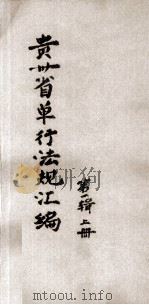 贵州省单行法规汇编
第一辑上册
www.mtoou.info